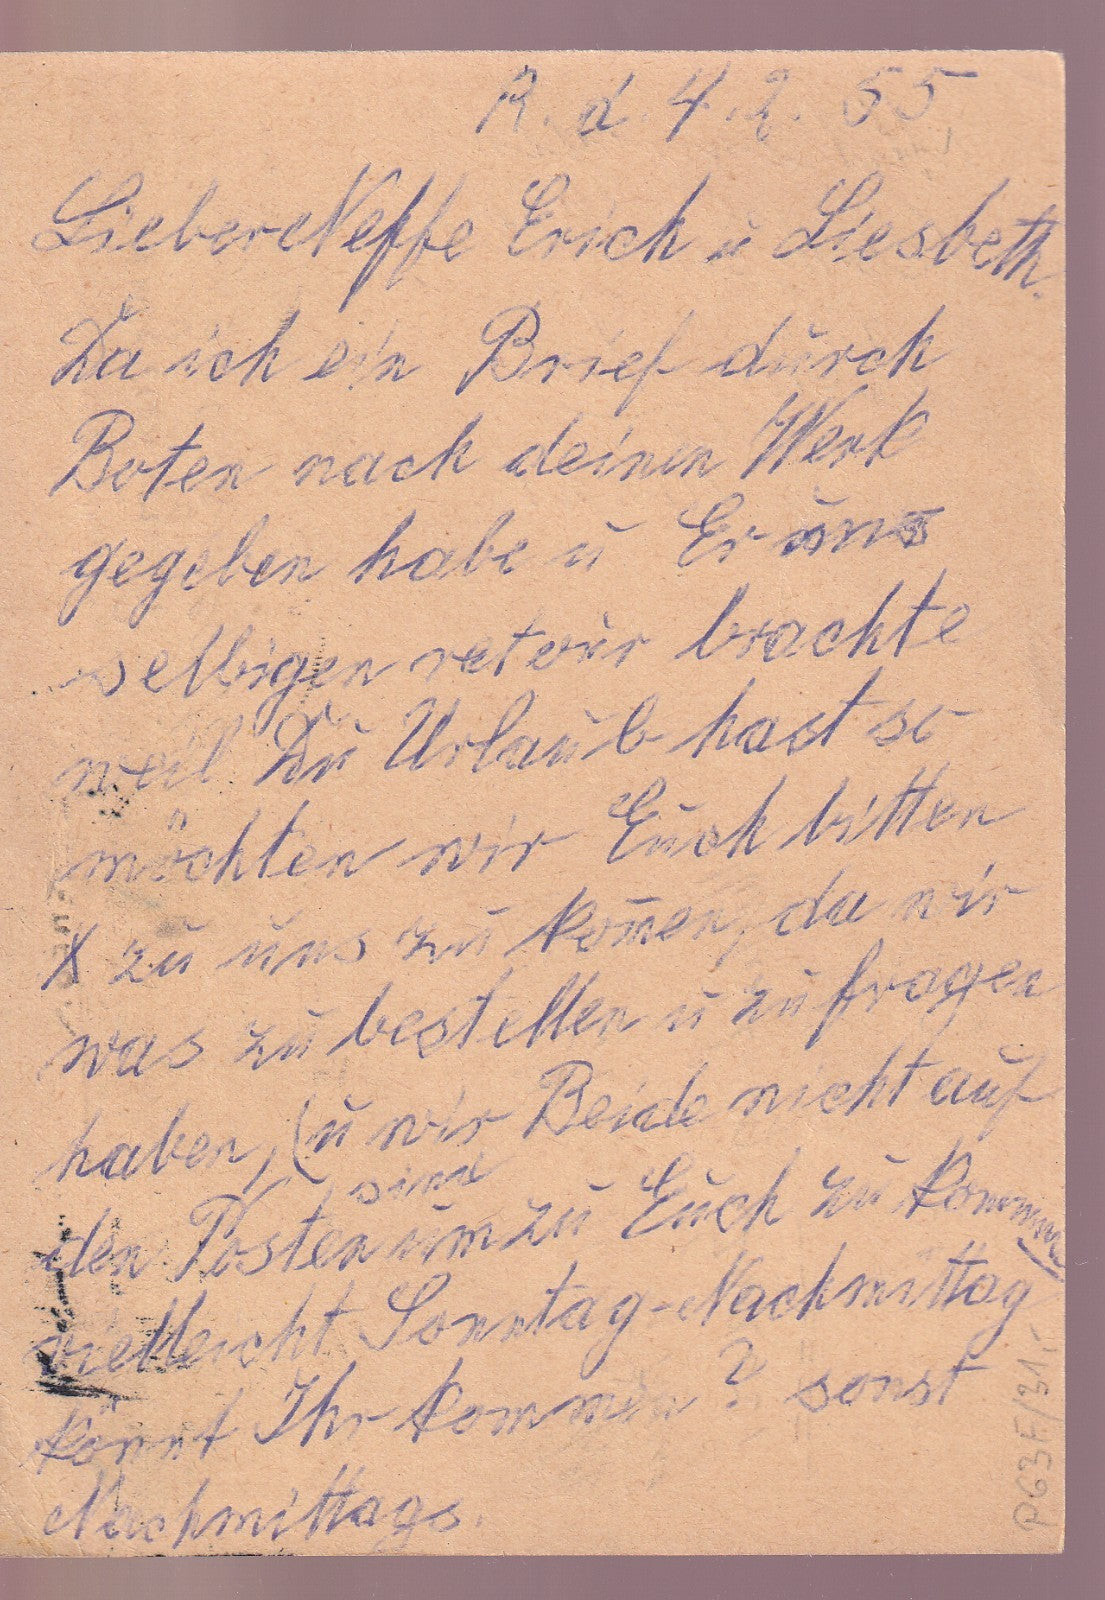 R. d. 4.2. 55
Lieber Neffe Erich u Liesbeth.
Da ich ein Brief durch
Boten nach deinen Werk
gegeben habe u Er uns
selbigen retour brachte
weil Du Urlaub hast so
möchten wir Euch bitten
X zu uns zu kom̄en, da wir
was zu bestellen u zu fragen
haben, (u wir Beide nicht auf
sind
den Posten um zu Euch zu kommen)
vielleicht Sonntag-Nachmittag
könnt Ihr kommen? sonst
Nachmittags.
P63F/31.